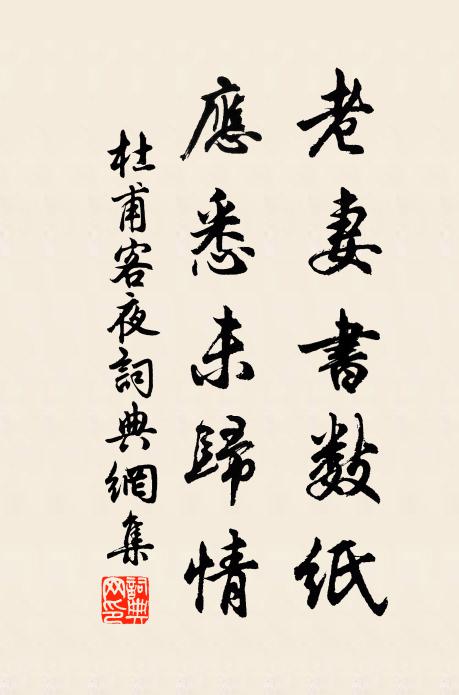 老妻書數紙
應悉未歸情
杜甫客夜詞典網集
詞典網印